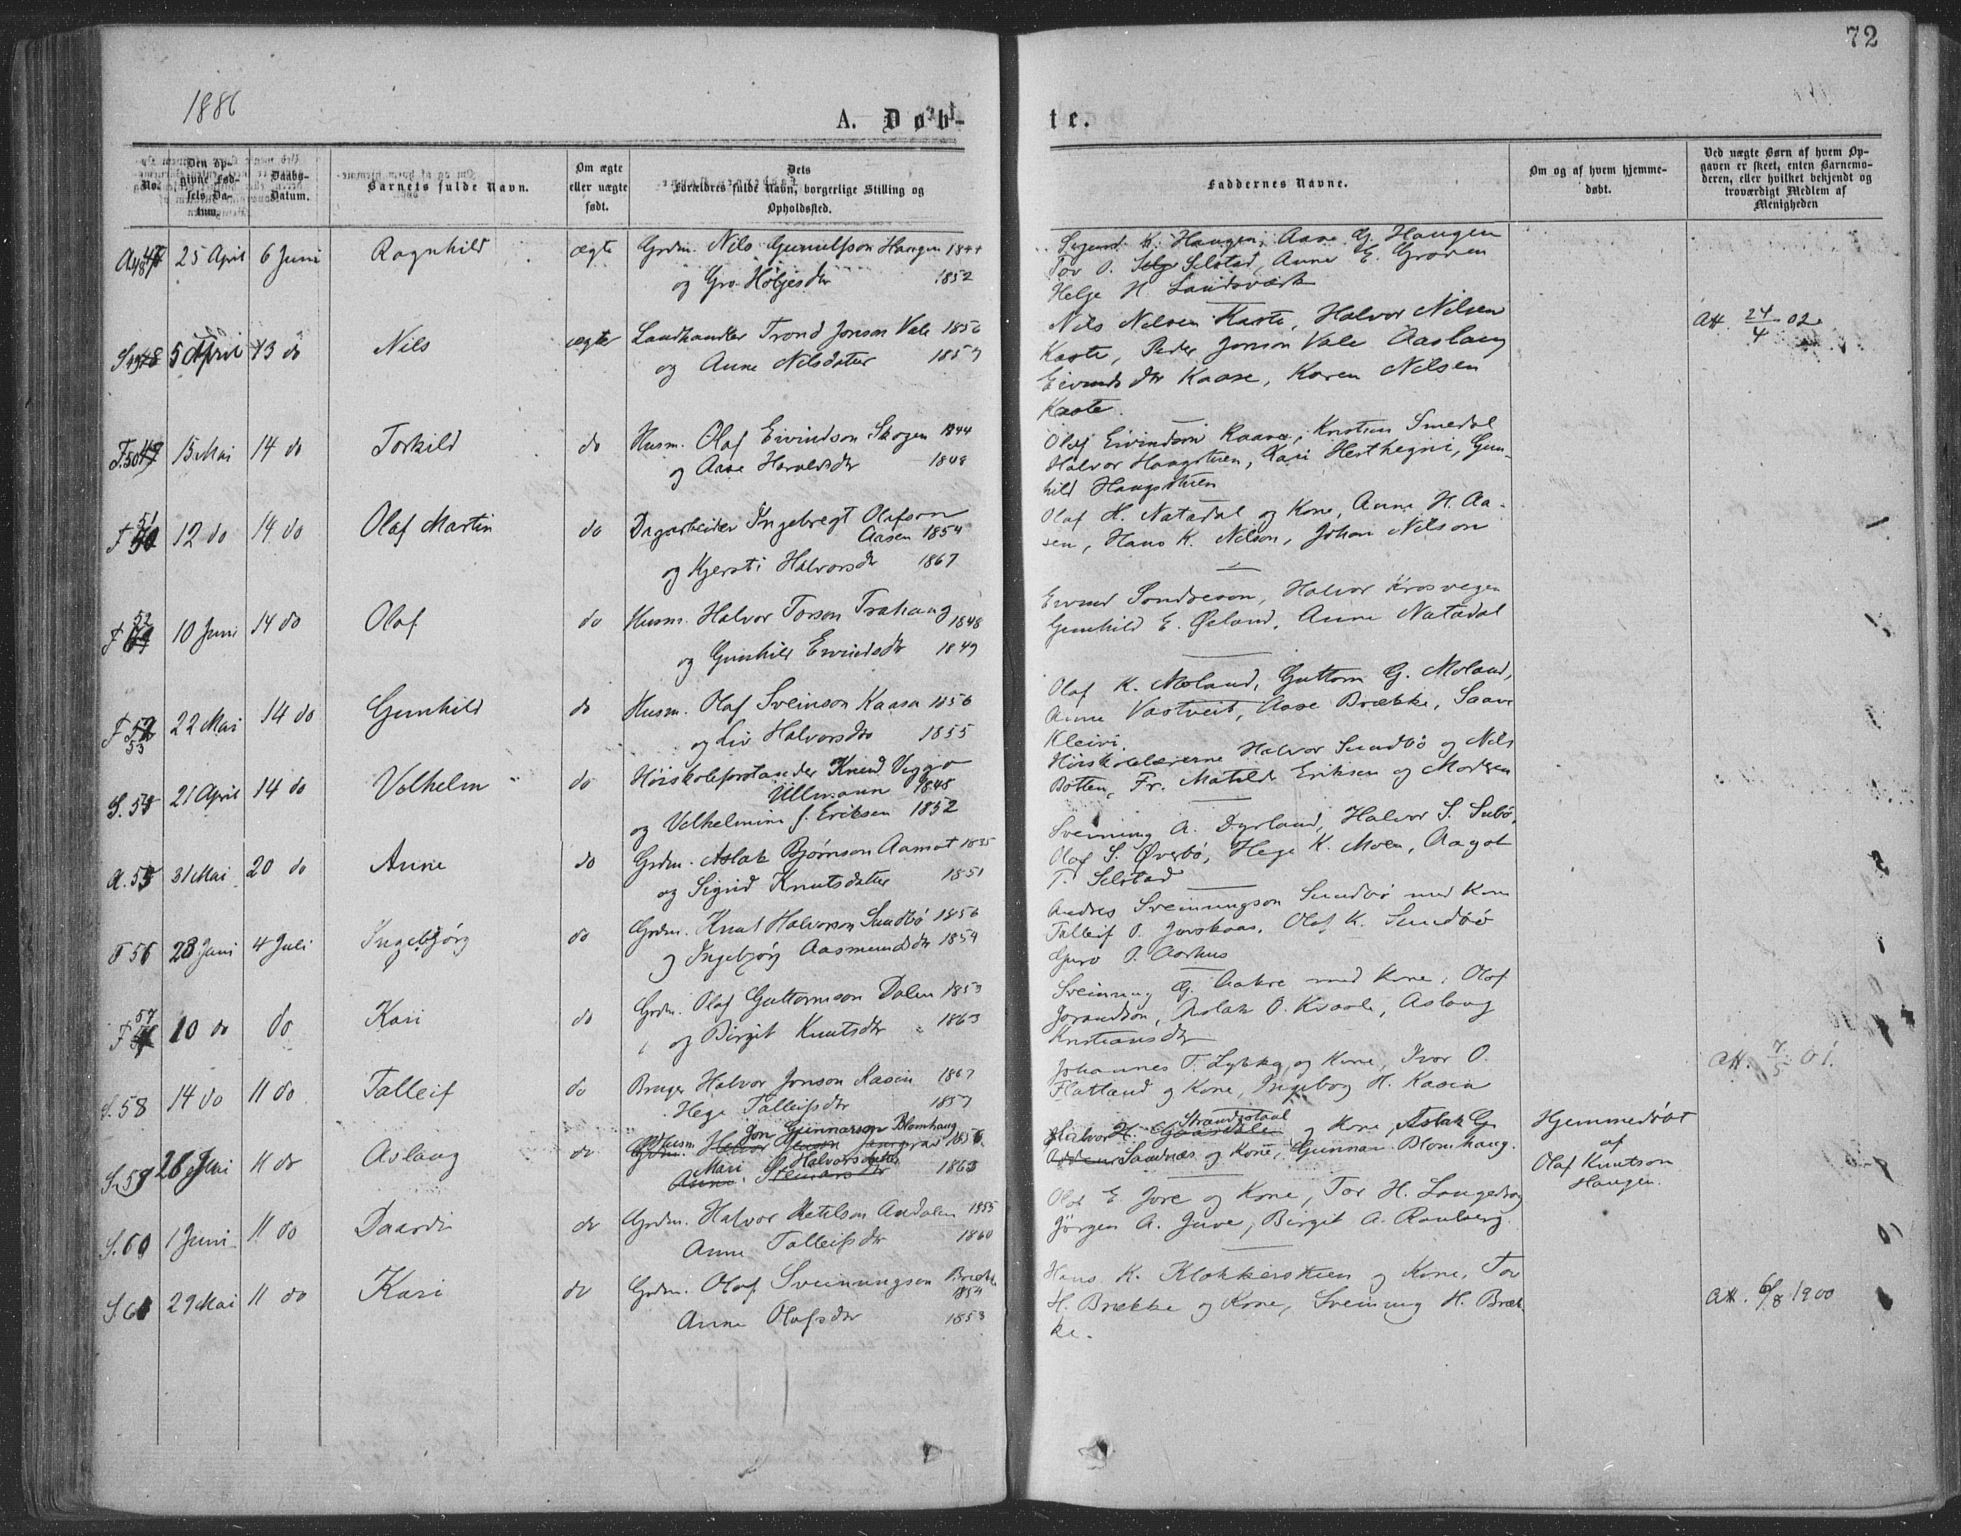 72
1886
A. Døb-
te.
No.
Den op-
givne Fød-
sels Da-
tum.
Daabs-
Datum.
Barnets fulde Navn.
Om ægte
eller uægte
født.
Dets
Forældres fulde Navn, borgerlige Stilling og
Opholdssted.
Faddernes Navne.
Om og af hvem hjemme-
døbt.
Ved uægte Børn af hvem Op-
gaven er skeet, enten Barnemo-
deren, eller hvilket bekjendt og
troværdigt Medlem af
Menigheden
25 April 6 Juni Ragnhild ægte Grdm. Nils Gunulfson Haugen 1844
og Gro Høljesdtr 1852
K. Haugen, Aase G. Haugen
Tor O. Selstad, Anne E. Groven
Helge H. Landsværk
5 April 13 do Nils ægte Landhandler Trond Jonson Vale 1856
og Anne Nilsdatter 1857
Nils Nilsen Kaste, Halvor Nilsen
Kaste, Peder Jonson Vale Aaslaug
Eivindsdtr Kaase, Karen Nilsen
Kaste.
Att. 24/4 02
15 Mai 14 do Torkild do Husm. Olaf Eivindson Skogen 1844
og Aase Haraldsdtr 1848
Olaf Eivindson Kaasa, Kristen Smedal
Halvor Haugstuen, Kari Hesthegni, Gun-
hild Haugstuen
F 51 12 do 14 do Olaf Martin do Dagarbeider Ingebregt Olafson
Aasen 1854
og Kjersti Halvorsdtr 1867
Olaf H. Natadal og Kone, Anne H. Aa-
sen, Hans K. Nilson, Johan Nilson
F 52 10 Juni 14 do Olaf do Husm. Halvor Torson Trahaug 1848
og Gunhild Eivindsdtr 1849
Eivind Sondreson, Halvor Krosvegen
Gunhild E. Øiland, Anne Natadal
F 53 22 Mai 14 do Gunhild do Husm. Olaf Sveinson Kaasa 1856
og Liv Halvorsdtr 1855
Olaf K. Moland, Guttorm G. Moland,
Anne Vastveit, Aase Brække, Saave
Kleivi.
21 April 14 do Volhelm do Høiskoleforstander Knud Viggo
Ullmann 1848
og Vilhelmine f. Eriksen 1852
Høiskolelærerne Halvor Sundbø og Nils
Botten, Fr. Matilde Eriksen og
31 Mai 20 do Anne do Grdm. Aslak Bjørnson Aamot 1835
og Sigrid Knutsdatter 1851
Sveinung A. Dyrland, Halvor S. Subø,
Olaf S. Øverbø, Hege K. Moen, Aagot
T. Selstad
56 28 Juni 4 Juli Ingebjørg do Grdm. Knut Halvorson Sundbø 1856
og Ingebjørg Aasmundsdtr 1854
Andres Sveinungson Sundbø med Kone
Talleif O. Juvskaas, Olaf K. Sundbø
Guro O. Aarhus
F 57 10 do do Kari do Grdm. Olaf Guttormson Dalen 1853
og Birgit Knutsdtr 1863
Sveinung G. Aakre med Kone, Olaf
Jorandson, Aslak O. Kvaale, Aslaug
Kristiansdtr
S. 58 14 do 11 do Talleif do Bruger Halvor Jonson Kasin
Hege Talleifsdtr 1857
Johannes T. Lykke og Kone, Ivor O.
Flatland og Kone, Ingeborg H. Kasin
Att. 7/5 01.
S. 59 26 Juni 11 do Aslaug do Husm. Jon Gunnarson Blomhaug
Mari Halvorsdatter 1863
Halvor H. Strandstaal og Kone, Aslak G.
Sandnæs og Kone, Gunnar Blomhaug.
Hjemmedøbt
af
Olaf Knutson
Haugen.
S. 60 1 Juni 11 do Daardi do Grdm. Halvor Ketilson Aadalen 1855
Anne Talleifsdtr 1860
Olaf E. Jore og Kone, Tor H. Langedrag
Jørgen A. Juve, Birgit A. Rauberg.
S. 61 29 Mai 11 do Kari do Grdm. Olaf Sveinungson Brække
1854
Anne Olafsdtr 1853
Hans K. Klokkersteen og Kone, Tor
H. Brække og Kone, Sveinung H. Bræk-
ke.
Att. 6/8 1900